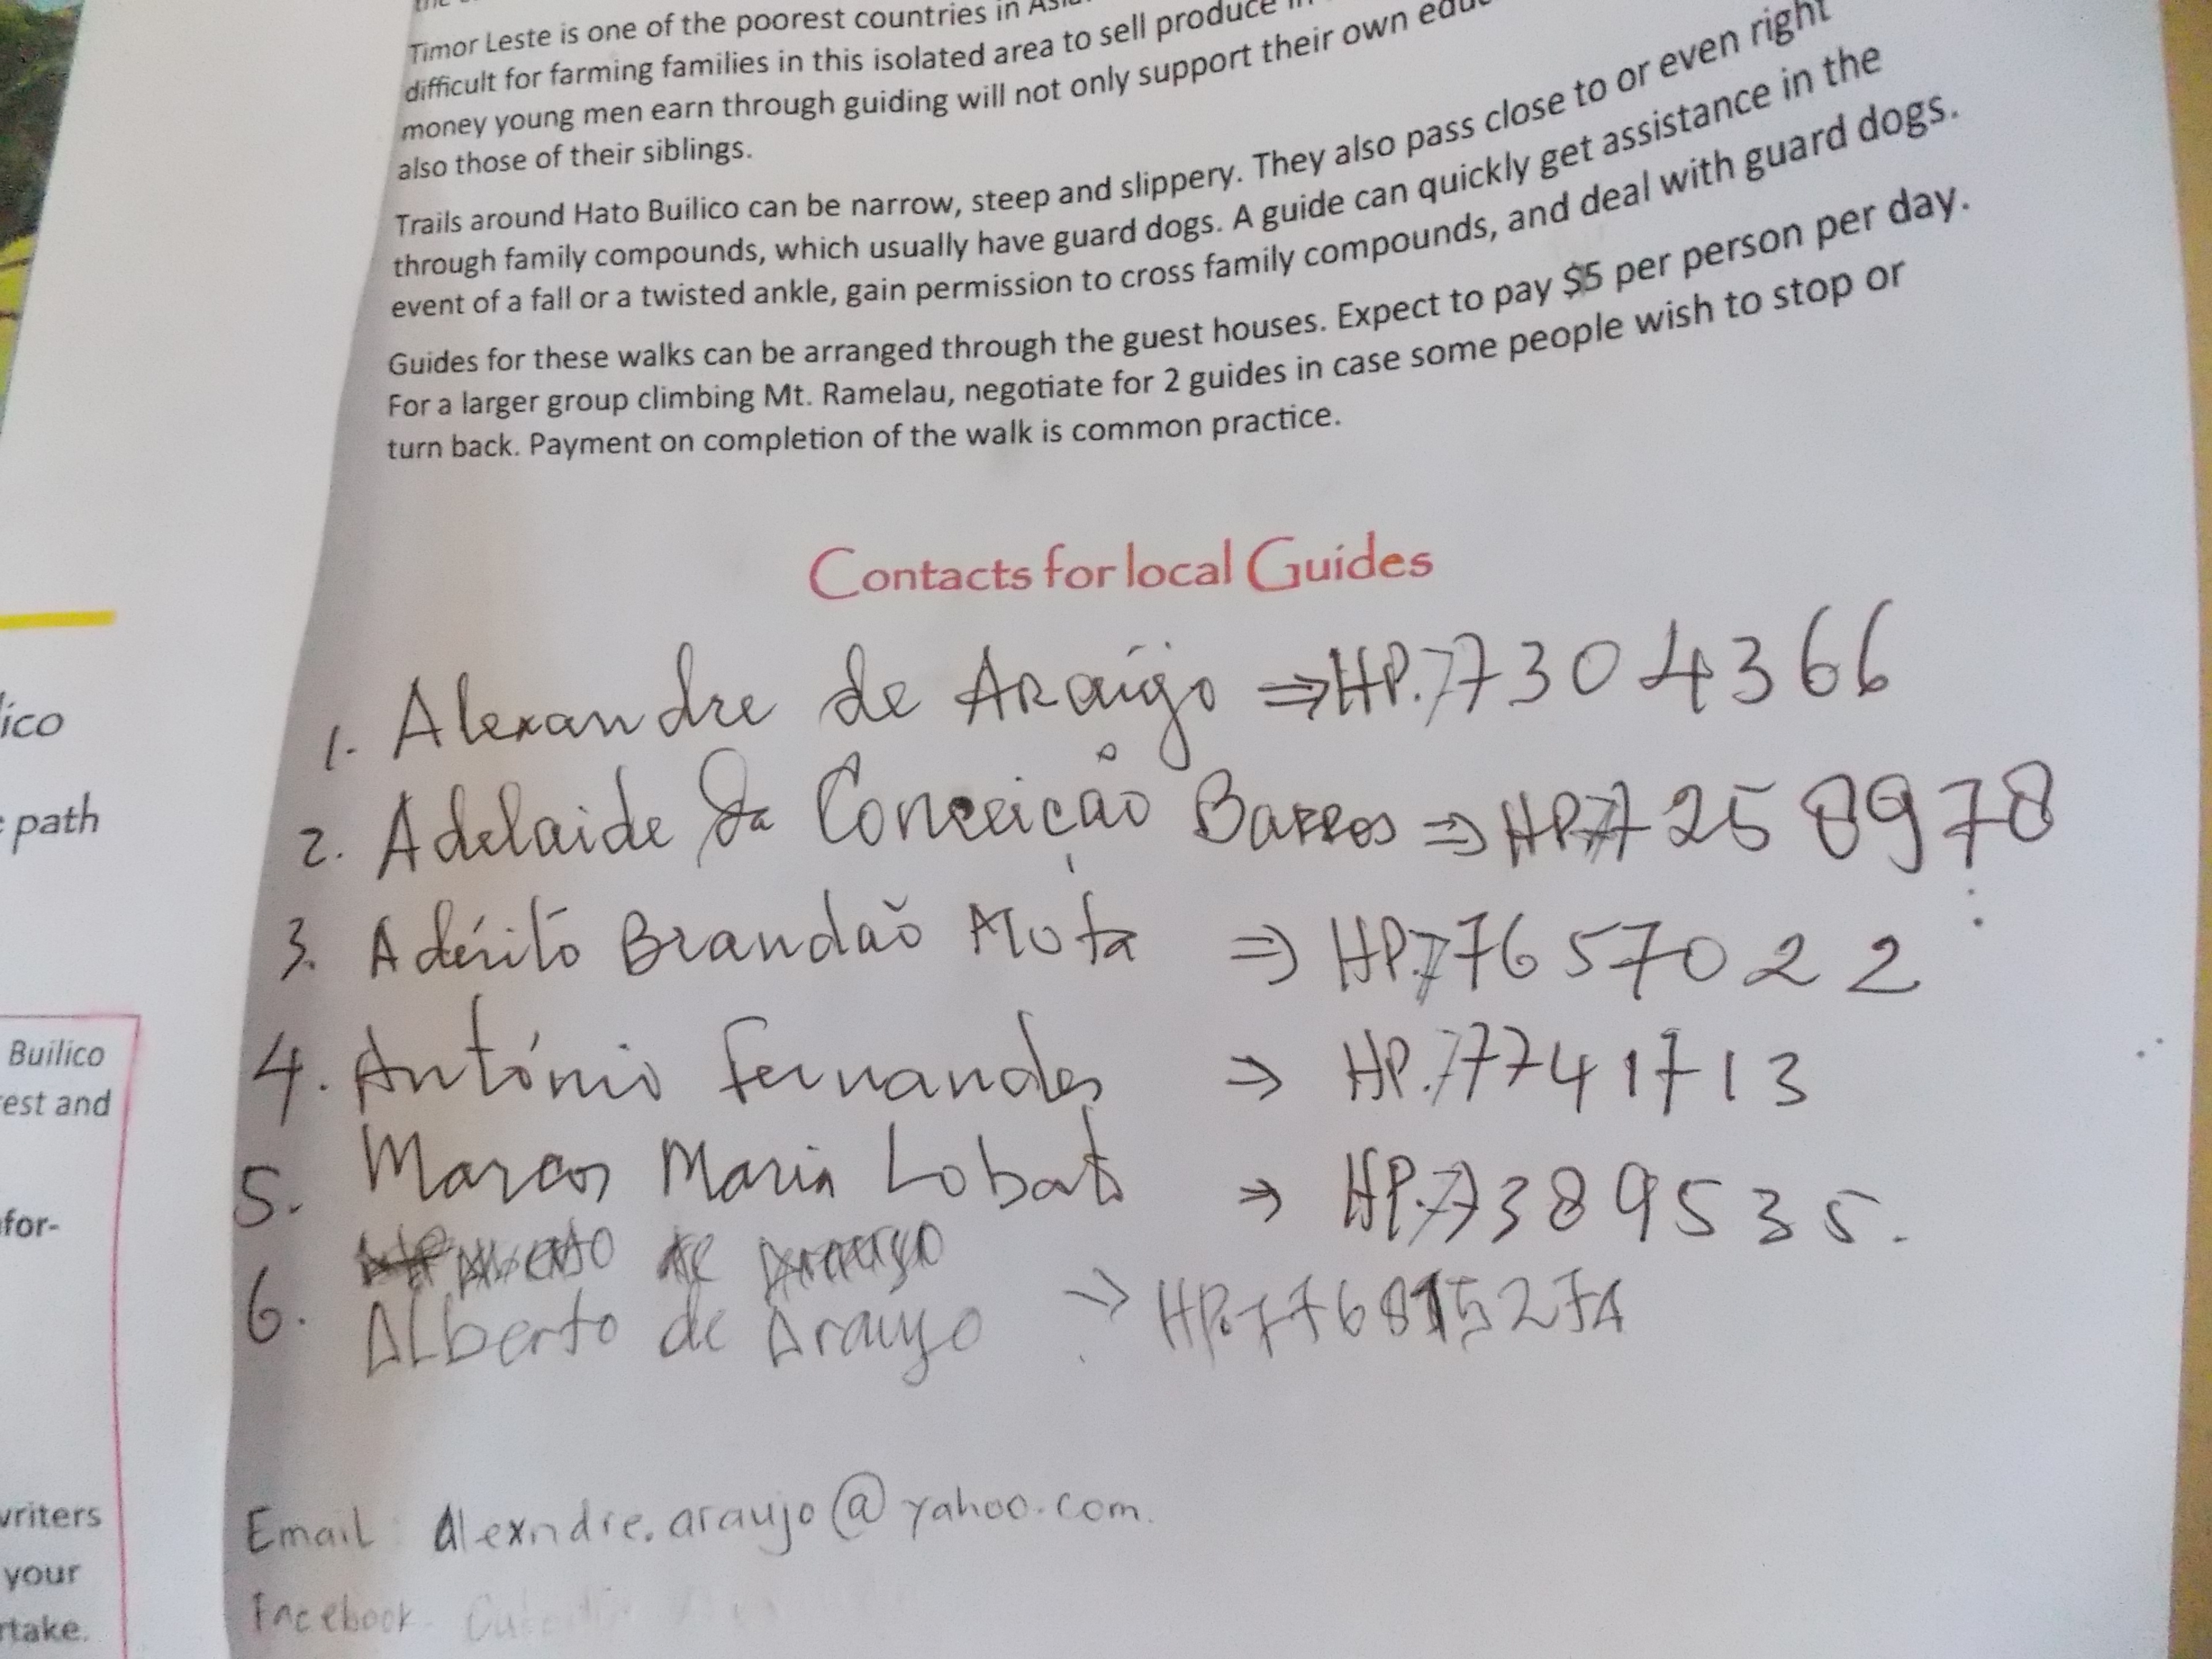 Timor Leste is one of the poorest countries in
difficult for farming families in this isolated area to sell produce
money young men earn through guiding will not only support their own
also those of their siblings.
Trails around Hato Builico can be narrow, steep and slippery. They also pass close to or even right
through family compounds, which usually have guard dogs. A guide can quickly get assistance in the
event of a fall or a twisted ankle, gain permission to cross family compounds, and deal with guard dogs.
Guides for these walks can be arranged through the guest houses. Expect to pay $5 per person per day.
For a larger group climbing Mt. Ramelau, negotiate for 2 guides in case some people wish to stop or
turn back. Payment on completion of the walk is common practice.
Contacts for local Guides
1. Alexandre de Araújo ⇒ HP.77304366
2. Adelaide da Conceição Barros ⇒ HP.77258978
3. Adérito Brandão Mota ⇒ HP.77657022
4. António Fernandes ⇒ HP.77741713
5. Marcos Maria Lobato ⇒ HP.77389535.
6. Alberto de Araujo → HP.
Email : Alexndre.araujo@yahoo.com.
Facebook
ico
path
Builico
est and
for-
writers
your
rtake.